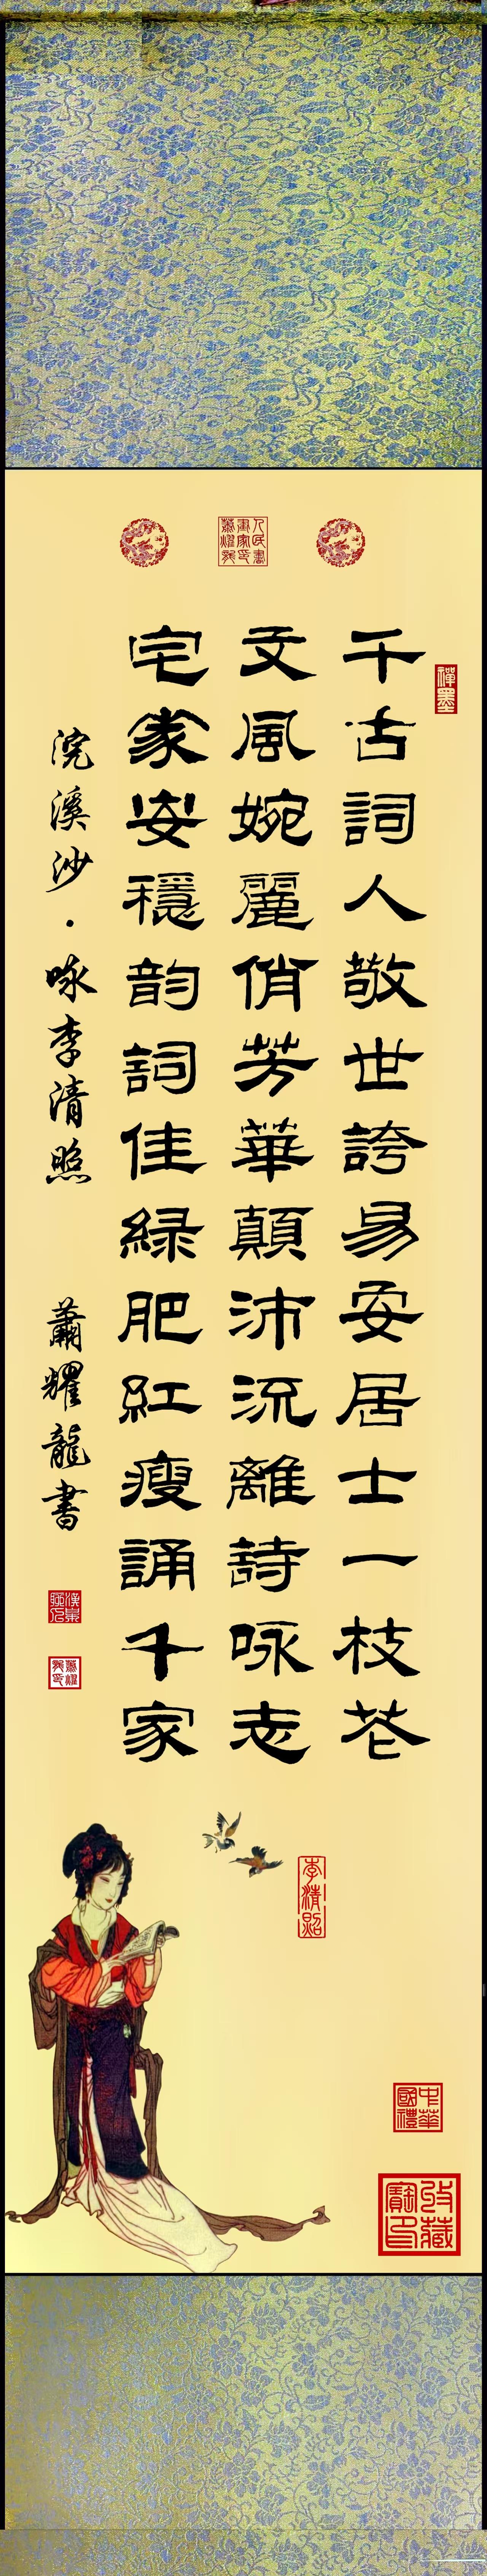 禪墨
千古詞人敬世誇易安居士一枝花
文風婉麗俏芳華顛沛流離詩咏志
宅家安穩韵詞佳緑肥紅瘦誦千家
浣溪沙·咏李清照 蕭耀龍書
蕭耀龍印
李清照
中華國禮
收藏寶印